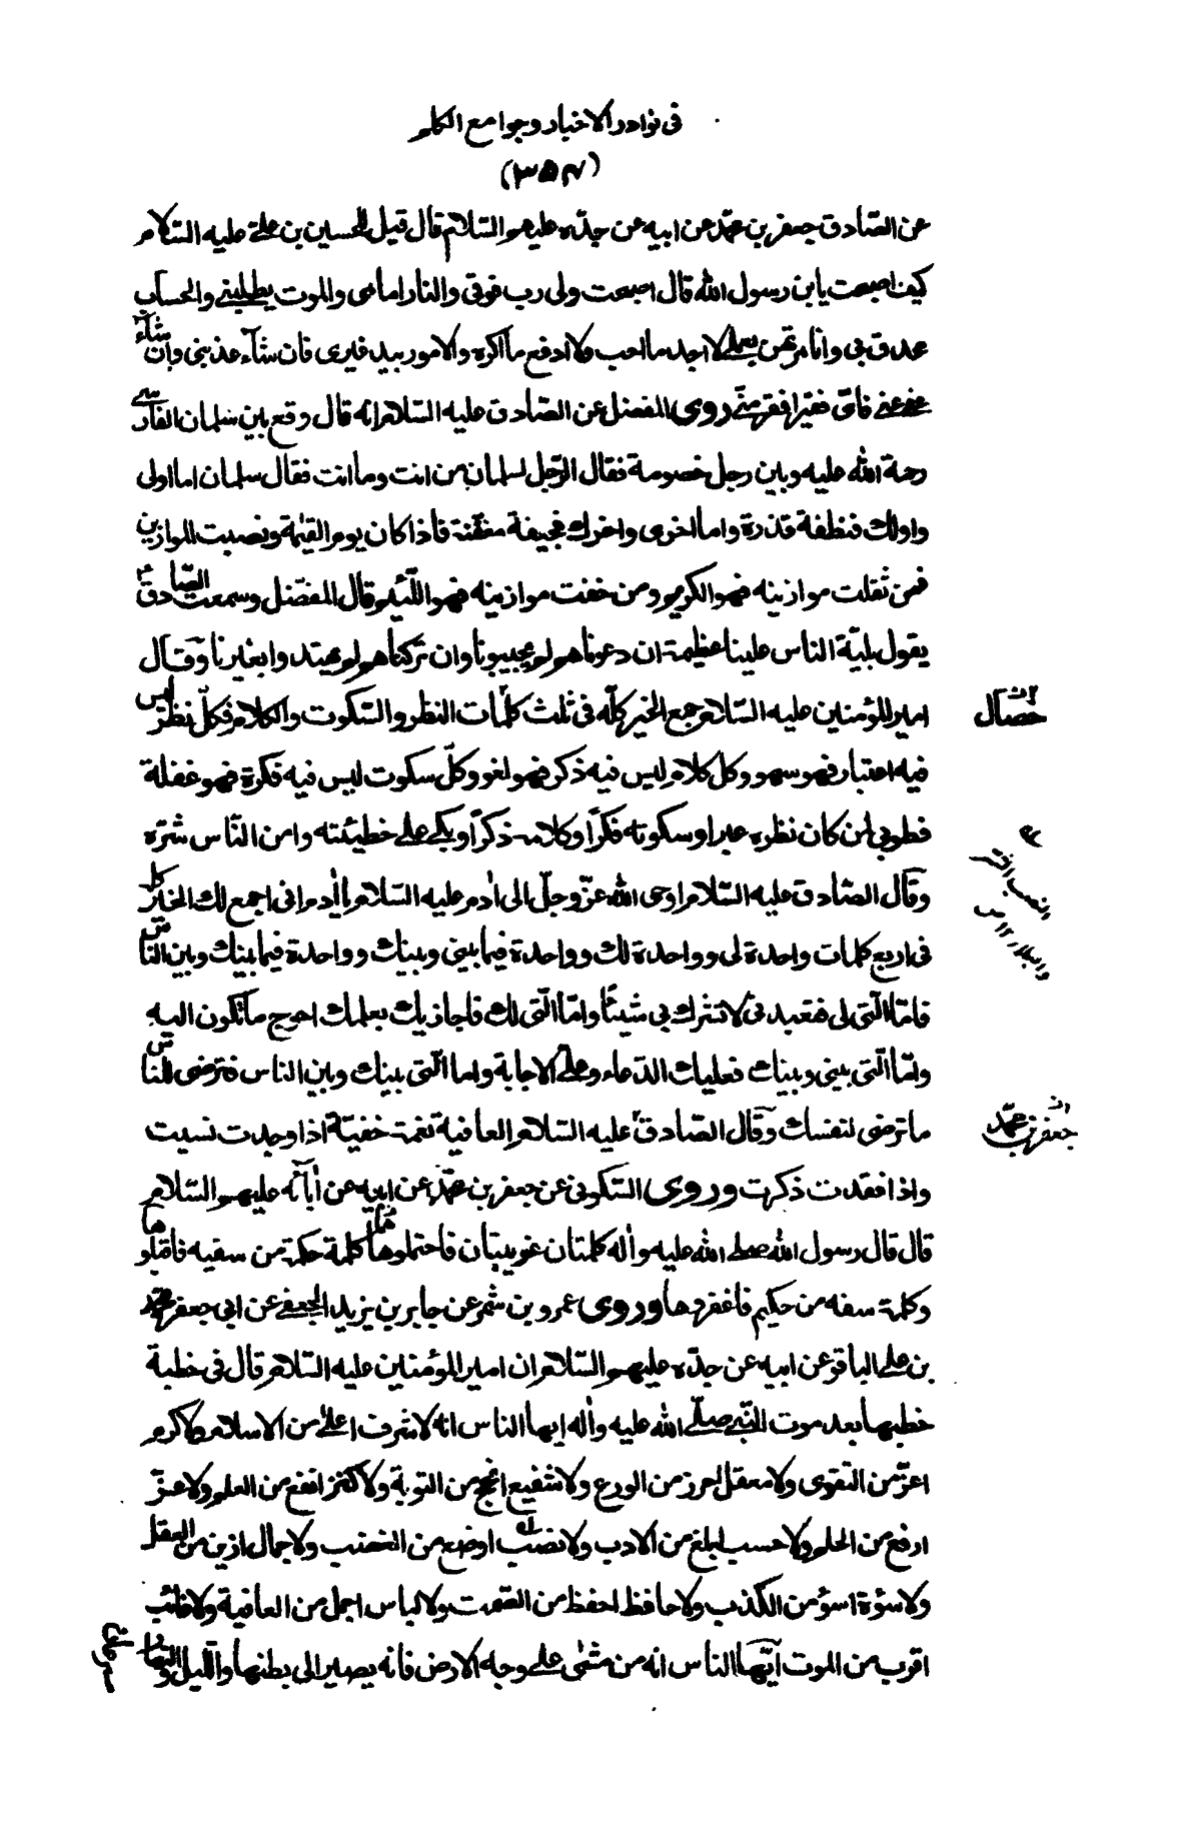 فى نوادر الاخبار وجوامع الكلم
(٣٥٧)
عن الصّادق جعفر بن محمّد عن ابيه عن جدّه عليهم السّلام قال قيل للحسين بن علىّ عليه السّلام
كيف اصبحت يابن رسول الله قال اصبحت ولى رب فوقى والنار امامى والموت يطلبنى والحساب
محدق بى وانا مرتهن بعملى لا اجد ما احب ولا ادفع ما اكره والامور بيد غيرى فان شآء عذبنى وان شآء
عفى عنى فاىّ فقير افقر منّى روى المفضل عن الصّادق عليه السّلام انه قال وقع بين سلمان الفارسى
رحمة الله عليه وبين رجل خصومة فقال الرّجل لسلمان من انت وما انت فقال سلمان اما اولى
واولك فنطفة قذرة واما اخرى واخرك فجيفة منتنة فاذا كان يوم القيٰمة ونصبت الموازين
فمن ثقلت موازينه فهو الكريم ومن خفت موازينه فهو اللّئيم وقال المفضّل وسمعت الصّادق ع
يقول بليّة الناس علينا عظيمة ان دعوناهم لم يجيبونا وان تركناهم لم يهتدوا بغيرنا وقال
امير المؤمنين عليه السّلام جمع الخير كلّه فى ثلث كلمات النظر والسّكوت والكلام فكلّ نظر ليس
خصال
فيه اعتبار فهو سهو وكل كلام ليس فيه ذكر فهو لغو وكلّ سكوت ليس فيه فكرة فهو غفلة
فطوبى لمن كان نظره عبرا وسكوته فكرًا وكلامه ذكرًا وبكى على خطيئته وامن النّاس شرّه
وقال الصّادق عليه السّلام اوحى الله عزّ وجلّ الى اٰدم عليه السّلام يا اٰدم انى اجمع لك الخير كله
فى اربع كلمات واحدة لى وواحدة لك وواحدة فيما بينى وبينك وواحدة فيما بينك وبين النّاس
فامّا الّتى لى فتعبدنى لا تشرك بى شيئًا وامّا الّتى لك فاجازيك بعملك احوج ما تكون اليه
وامّا الّتى بينى وبينك فعليك الدّعاء وعلىّ الاجابة واما الّتى بينك وبين الناس فترضى للناس
ما ترضى لنفسك وقال الصّادق عليه السّلام العافية نعمة خفيّة اذا وجدت نسيت
جعفر بن محمّد
واذا فقدت ذكرت وروى السّكونى عن جعفر بن محمّد عن ابيه عن اٰبآئه عليهم السّلام
قال قال رسول الله صلى الله عليه واٰله كلمتان غريبتان فاحتملوهما كلمة حكمة من سفيه فاقبلوها
وكلمة سفه من حكيم فاغفروها وروى عمرو بن شمر عن جابر بن يزيد الجعفى عن ابى جعفر محمّد
بن على الباقر عن ابيه عن جدّه عليهم السّلام ان امير المؤمنين عليه السّلام قال فى خطبة
خطبها بعد موت النّبى صلّى الله عليه واٰله ايها الناس انه لا شرف اعلىٰ من الاسلام ولا كرم
اعزّ من التقوى ولا معقل احرز من الورع ولا شفيع انجح من التوبة ولا كنز انفع من العلم ولا عزّ
ارفع من الحلم ولا حسب ابلغ من الادب ولا نصب اوضع من الغضب ولا جمال ازين من العقل
ولا سؤة اسوؤ من الكذب ولا حافظ احفظ من الصّمت ولا لباس اجمل من العافية ولا غائب
اقرب من الموت ايّها الناس انه من مشىٰ على وجه الارض فانه يصير الى بطنها والّليل والنّهار